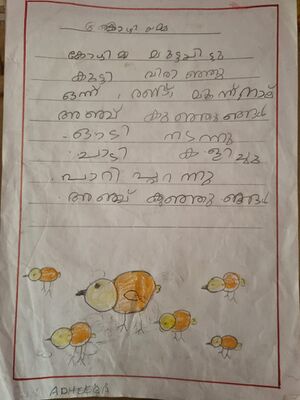 കോഴിയമ്മ
കോഴിമ്മ മുട്ടയിട്ടു
കുട്ടി വിരിഞ്ഞു
ഒന്ന്, രണ്ട്, മൂന്ന്, നാല്
അഞ്ച് കുഞ്ഞുങ്ങൾ
ഓടി നടന്നു
ചാടി കളിച്ചു
പാറി പറന്നു
അഞ്ച് കുഞ്ഞുങ്ങൾ
ADHEEBA